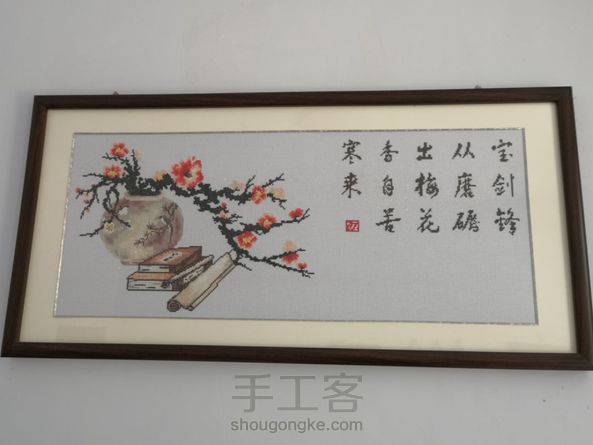 宝剑鋒
从磨礪
出梅花
香自苦
寒来
手工客
shougongke.com